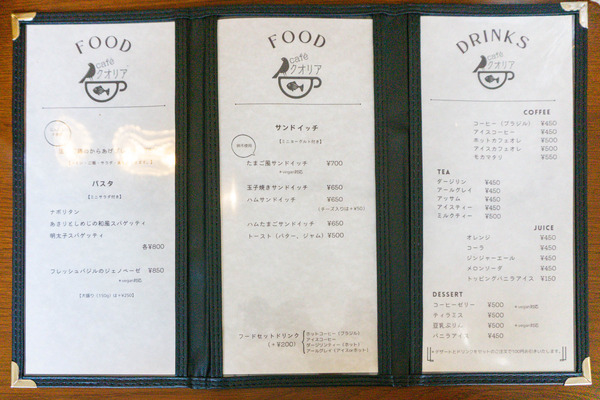 FOOD
café
クオリア
のからあげ
パスタ
【ミニサラダ付き】
ナポリタン
あさりとしめじの和風スパゲッティ
明太子スパゲッティ
各¥800
フレッシュバジルのジェノベーゼ ¥850
*vegan対応
【大盛り (150g) は+¥250】
FOOD
café
クオリア
サンドイッチ
【ミニヨーグルト付き】
たまご風サンドイッチ ¥700
*vegan対応
玉子焼きサンドイッチ ¥650
ハムサンドイッチ ¥650
(チーズ入りは+¥50)
ハムたまごサンドイッチ ¥650
トースト (バター、ジャム) ¥500
フードセットドリンク
(+ ¥200)
ホットコーヒー (ブラジル)
アイスコーヒー
ダージリンティー (ホット)
アールグレイ (アイスorホット)
DRINKS
café
クオリア
COFFEE
コーヒー (ブラジル) ¥450
アイスコーヒー ¥450
ホットカフェオレ ¥500
アイスカフェオレ ¥500
モカマタリ ¥550
TEA
ダージリン ¥450
アールグレイ ¥450
アッサム ¥450
アイスティー ¥450
ミルクティー ¥500
JUICE
オレンジ ¥450
コーラ ¥450
ジンジャーエール ¥450
メロンソーダ ¥450
トッピングバニラアイス ¥150
DESSERT
コーヒーゼリー ¥500 *vegan対応
ティラミス ¥500
豆乳ぷりん ¥500 *vegan対応
バニラアイス ¥450